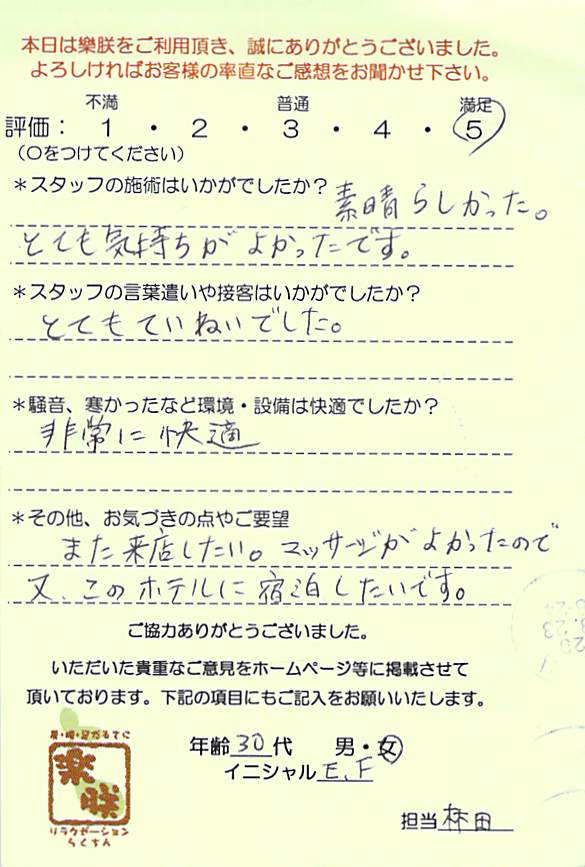 本日は樂朕をご利用頂き、誠にありがとうございました。
よろしければお客様の率直なご感想をお聞かせ下さい。
不満 普通 満足
評価： 1 ・ 2 ・ 3 ・ 4 ・ 5
（○をつけてください）
＊スタッフの施術はいかがでしたか？ 素晴らしかった。
とても気持ちがよかったです。
＊スタッフの言葉遣いや接客はいかがでしたか？
とてもていねいでした。
＊騒音、寒かったなど環境・設備は快適でしたか？
非常に快適
＊その他、お気づきの点やご要望
また来店したい。マッサージがよかったので
又、このホテルに宿泊したいです。
ご協力ありがとうございました。
いただいた貴重なご意見をホームページ等に掲載させて
頂いております。下記の項目にもご記入をお願いいたします。
年齢 30 代 男・女
イニシャル E.F
担当 林田
樂朕
リラクゼーション
らくちん